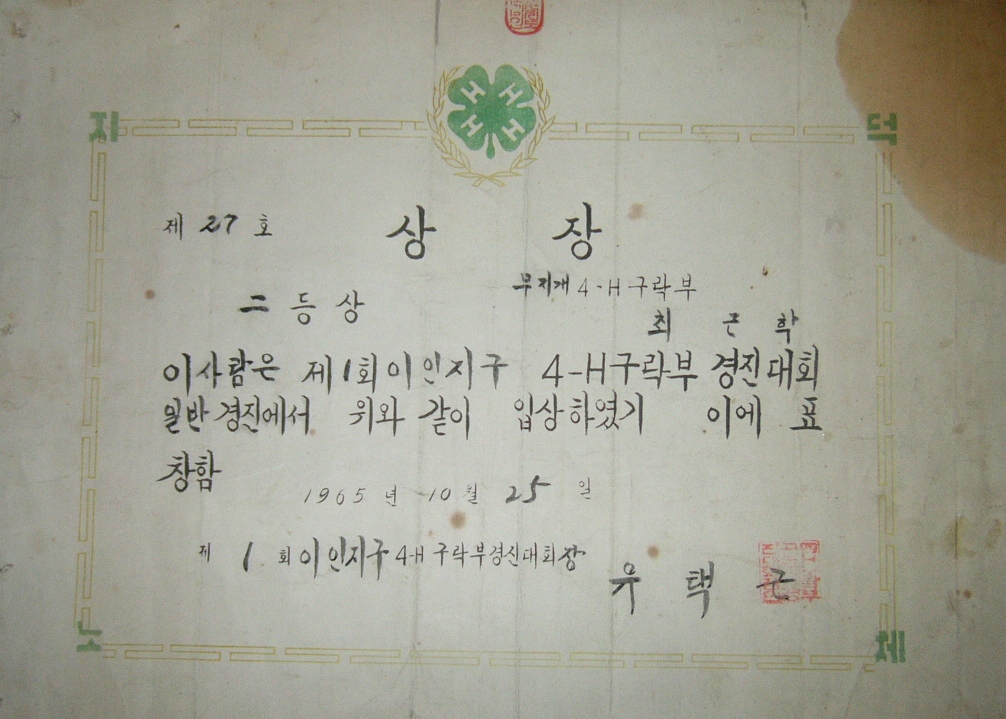 지 덕
H H H H
제 27 호
상 장
무지개 4-H 구락부
二 등 상
최 근 학
이사람은 제1회이인지구 4-H구락부 경진대회
일반경진에서 위와 같이 입상하였기 이에 표
창함
1965 년 10 월 25 일
제 1 회이인지구4-H 구락부경진대회장
우 택 근
노 체